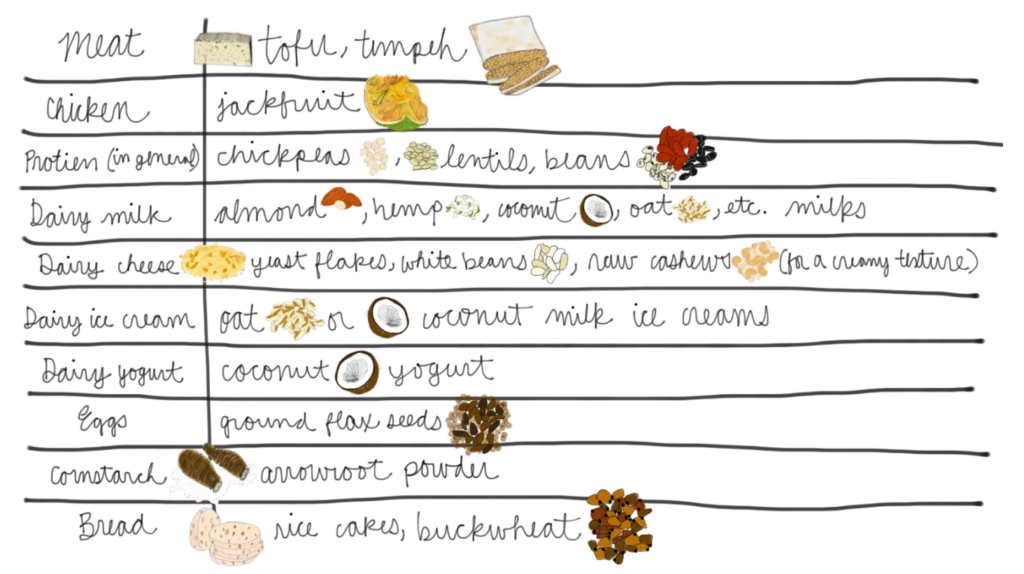 Meat tofu, tempeh
Chicken jackfruit
Protien (in general) chickpeas, lentils, beans
Dairy milk almond, hemp, coconut, oat, etc. milks
Dairy cheese yeast flakes, white beans, raw cashews (for a creamy texture)
Dairy ice cream oat or coconut milk ice creams
Dairy yogurt coconut yogurt
Eggs ground flax seeds
Cornstarch arrowroot powder
Bread rice cakes, buckwheat